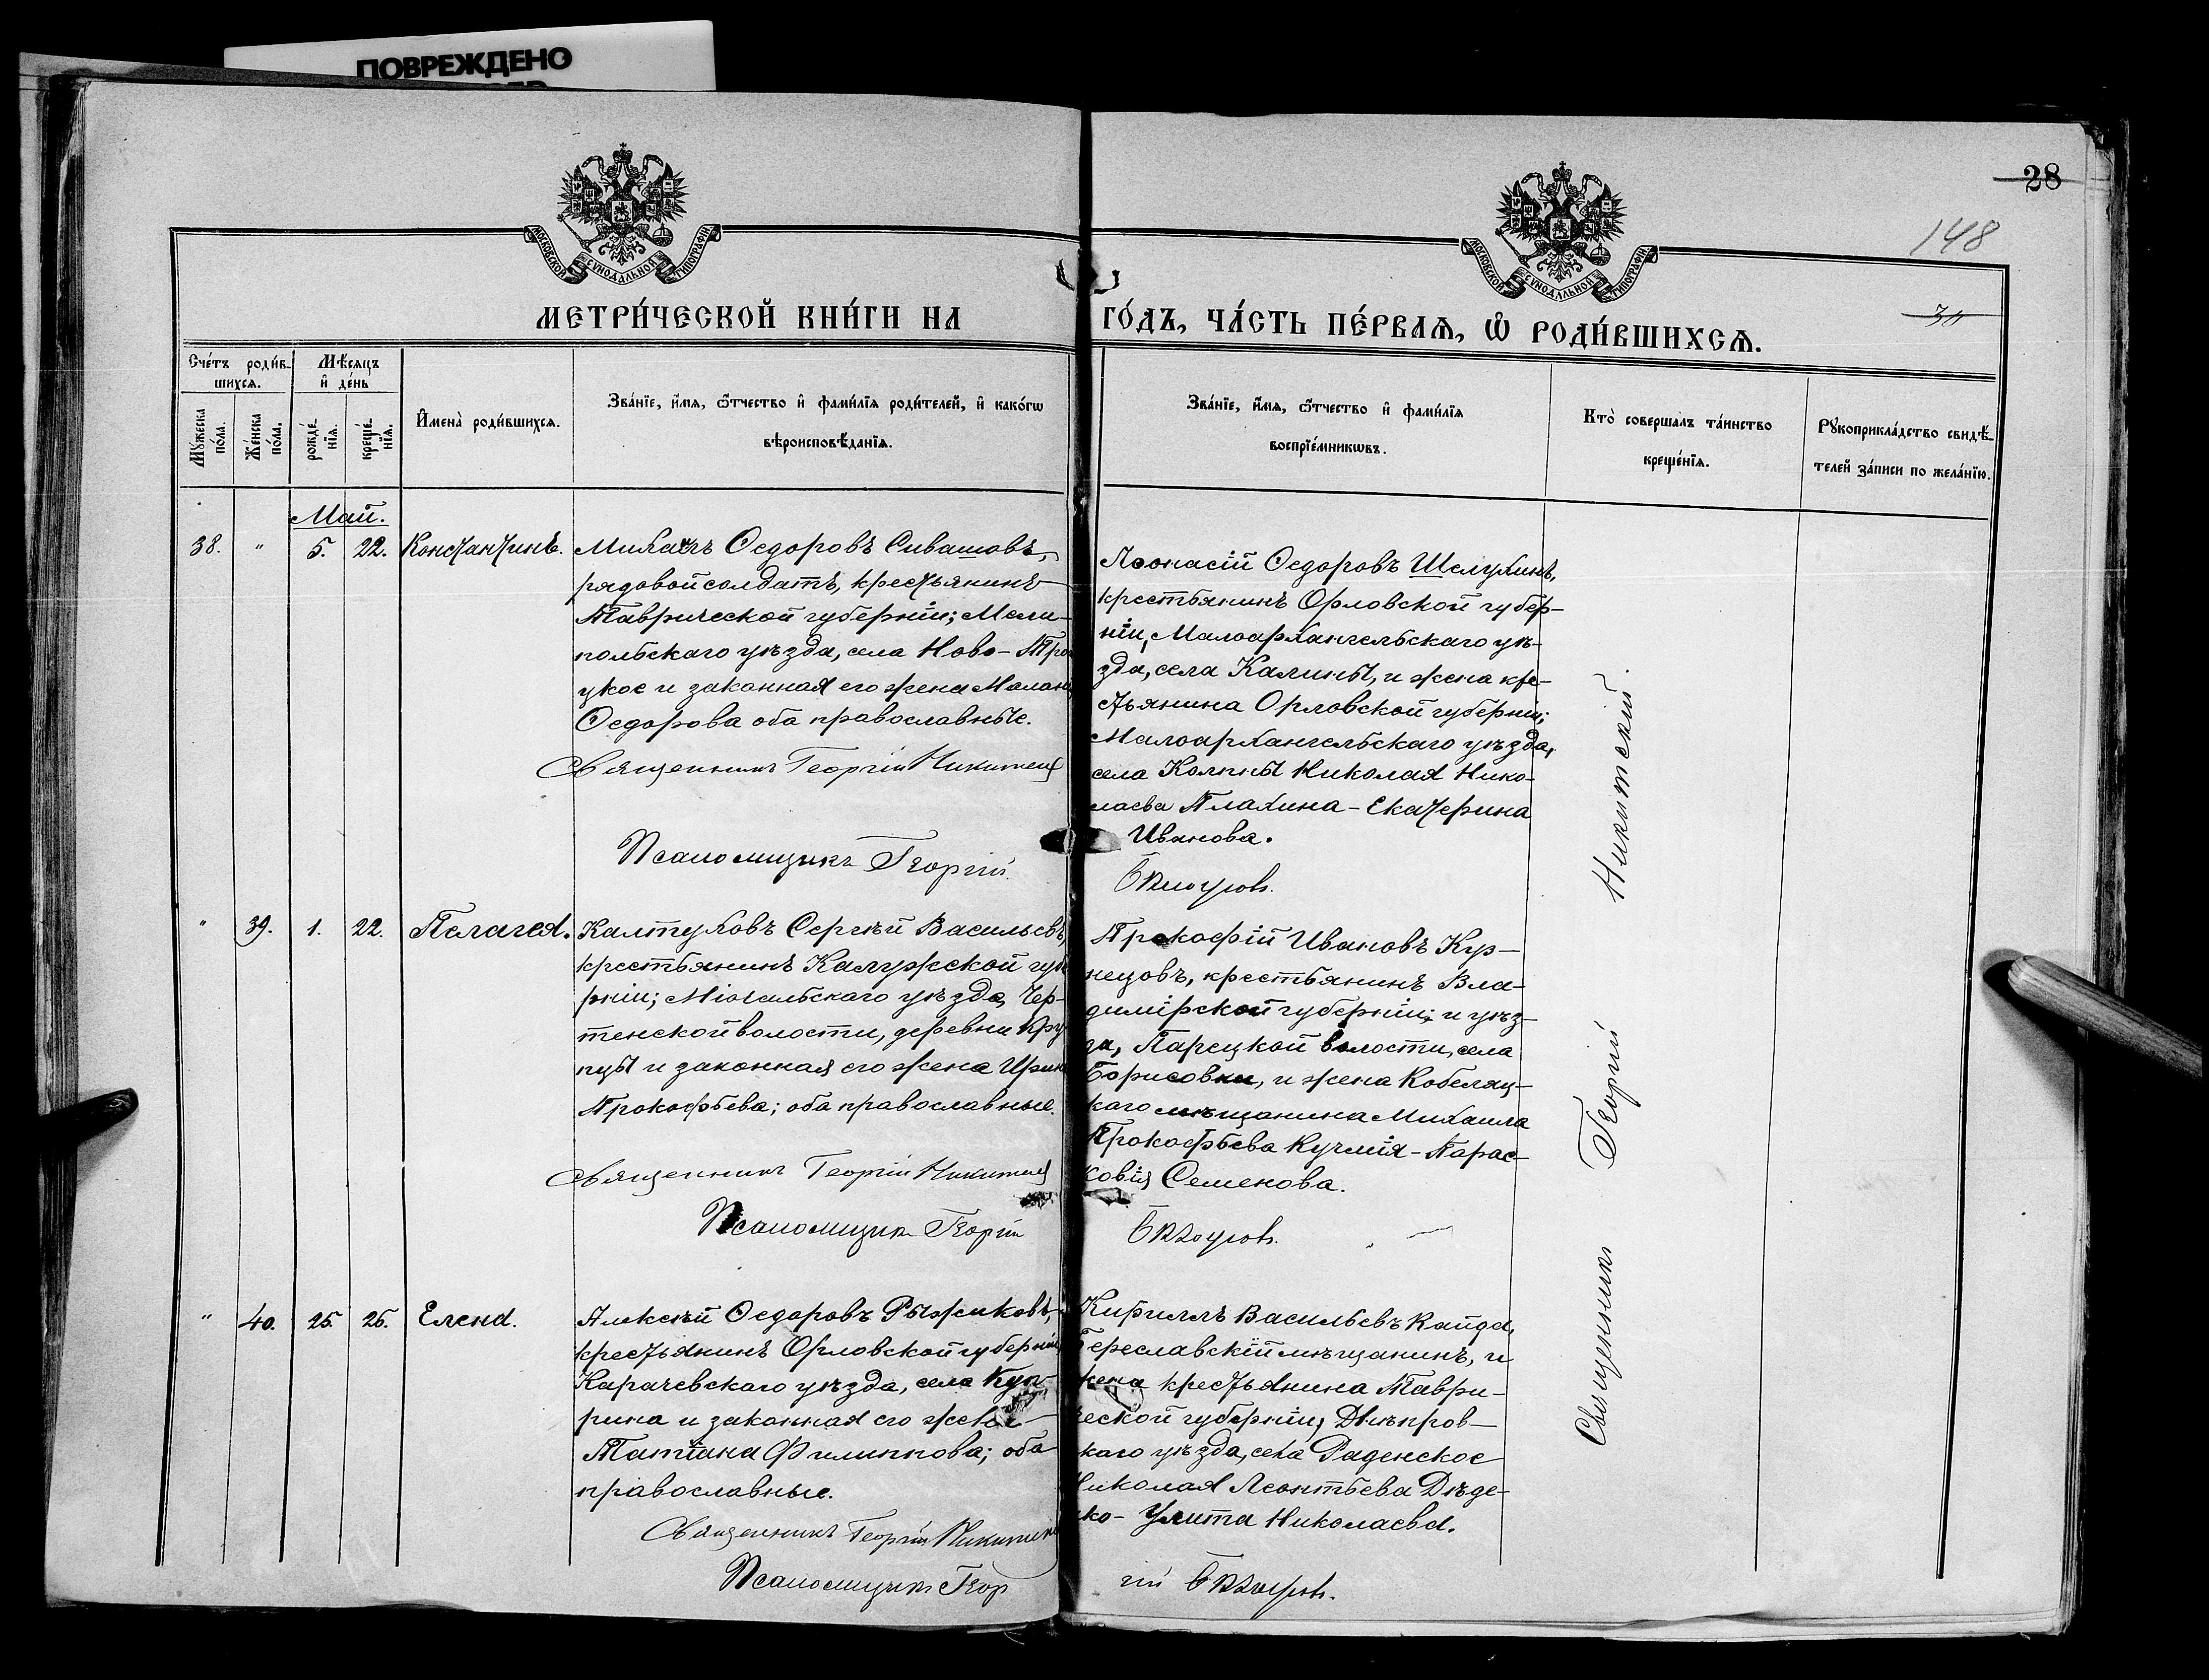 ПОВРЕЖДЕНО
28
148
МОСКОВСКОЙ СУНОДАЛЬНОЙ ТИПОГРАФІИ
МОСКОВСКОЙ СУНОДАЛЬНОЙ ТИПОГРАФІИ
МЕТРИ́ЧЕСКОЙ КНИ́ГИ НА
ГО́ДЪ, ЧА́СТЬ ПЕ́РВАѦ, Ѡ РОДИ́ВШИХСѦ.
Сче́тъ роди́в-
шихсѧ.
Мꙋ́жеска по́ла.
Же́нска по́ла.
Мѣ́сѧцъ и де́нь
рожде́нїѧ.
креще́нїѧ.
Имена̀ роди́вшихсѧ.
Зва́нїе, и́мѧ, ѻ́тчество и фами́лїѧ роди́телей, и како́гѡ
вѣроисповѣ́данїѧ.
Зва́нїе, и́мѧ, ѻ́тчество и фами́лїѧ
воспрїе́мникѡвъ.
Кто̀ совершалъ та́инство
креще́нїѧ.
Рꙋкоприкла́дство свидѣ́-
телей за́писи по жела́нїю.
Май.
38. " 5. 22. Константинъ.
Михаилъ Ѳедоровъ Сивашовъ,
рядовой солдатъ, крестьянинъ
Таврической губерніи; Мели-
польскаго уѣзда, села Ново-Тро
цкое и законная его жена Малан
Ѳедорова оба православные.
Священникъ Георгій Никитск
Псаломщикъ Георгій
Аѳонасій Ѳедоровъ Шелухинъ,
крестьянинъ Орловской губер-
ніи, Малоархангельскаго уѣ-
зда, села Калины, и жена кре-
стьянина Орловской губерніи;
Малоархангельскаго уѣзда,
села Колпны Николая Нико-
лаева Плахина - Екатерина
Иванова.
" 39. 1. 22. Пелагея.
Калтуховъ Сергѣй Васильевъ,
крестьянинъ Калужской губе
рніи; Міочельскаго уѣзда, Чер-
тенской волости, деревни Кру
пцы и законная его жена Ирин
Прокофьева; оба православные.
Священникъ Георгій Никитск
Псаломщикъ Георгій
Прокофій Ивановъ Куз-
нецовъ, крестьянинъ Вла-
димірской губерніи; и уѣз-
да, Парецкой волости, села
Борисовки, и жена Кобеляц-
каго мѣщанина Михаила
Прокофьева Кучмія - Парас-
ковія Семенова.
" 40. 25. 26. Елена.
Алексѣй Ѳедоровъ Рыжиковъ,
крестьянинъ Орловской губерніи
Карачевскаго уѣзда, села Куп-
рина и законная его жена
Татіана Филиппова; оба
православные.
Священникъ Георгій Никитск
Псаломщикъ Геор
Кириллъ Васильевъ Кайда,
Береславскій мѣщанинъ, и
жена крестьянина Таври-
ческой губерніи, Днѣпров-
скаго уѣзда, села Раденское
Николая Леонтьева Дѣде-
нко - Улита Николаева.
гій
Священникъ Георгій Никитскій.